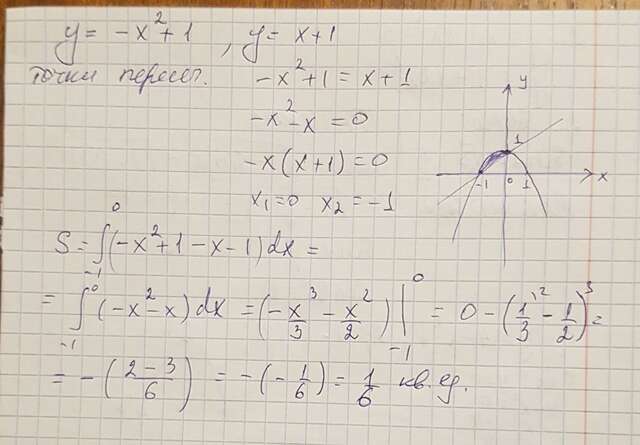 y = -x² + 1 , y = x + 1
точки пересеч. -x² + 1 = x + 1
-x² - x = 0
-x(x + 1) = 0
x₁ = 0 x₂ = -1
y
1
-1 0 1 x
S = ∫₋₁⁰ (-x² + 1 - x - 1) dx =
= ∫₋₁⁰ (-x² - x) dx = (-x³/3 - x²/2) |₋₁⁰ = 0 - (1/3^{\2} - 1/2^{\3}) =
= -((2 - 3)/6) = -(-1/6) = 1/6 кв. ед.